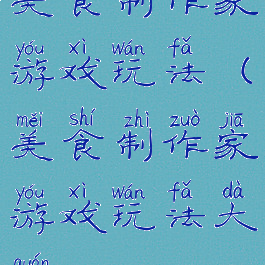 美食制作家
yóu xì wán fǎ
游戏玩法（
měi shí zhì zuò jiā
美食制作家
yóu xì wán fǎ dà
游戏玩法大
quán